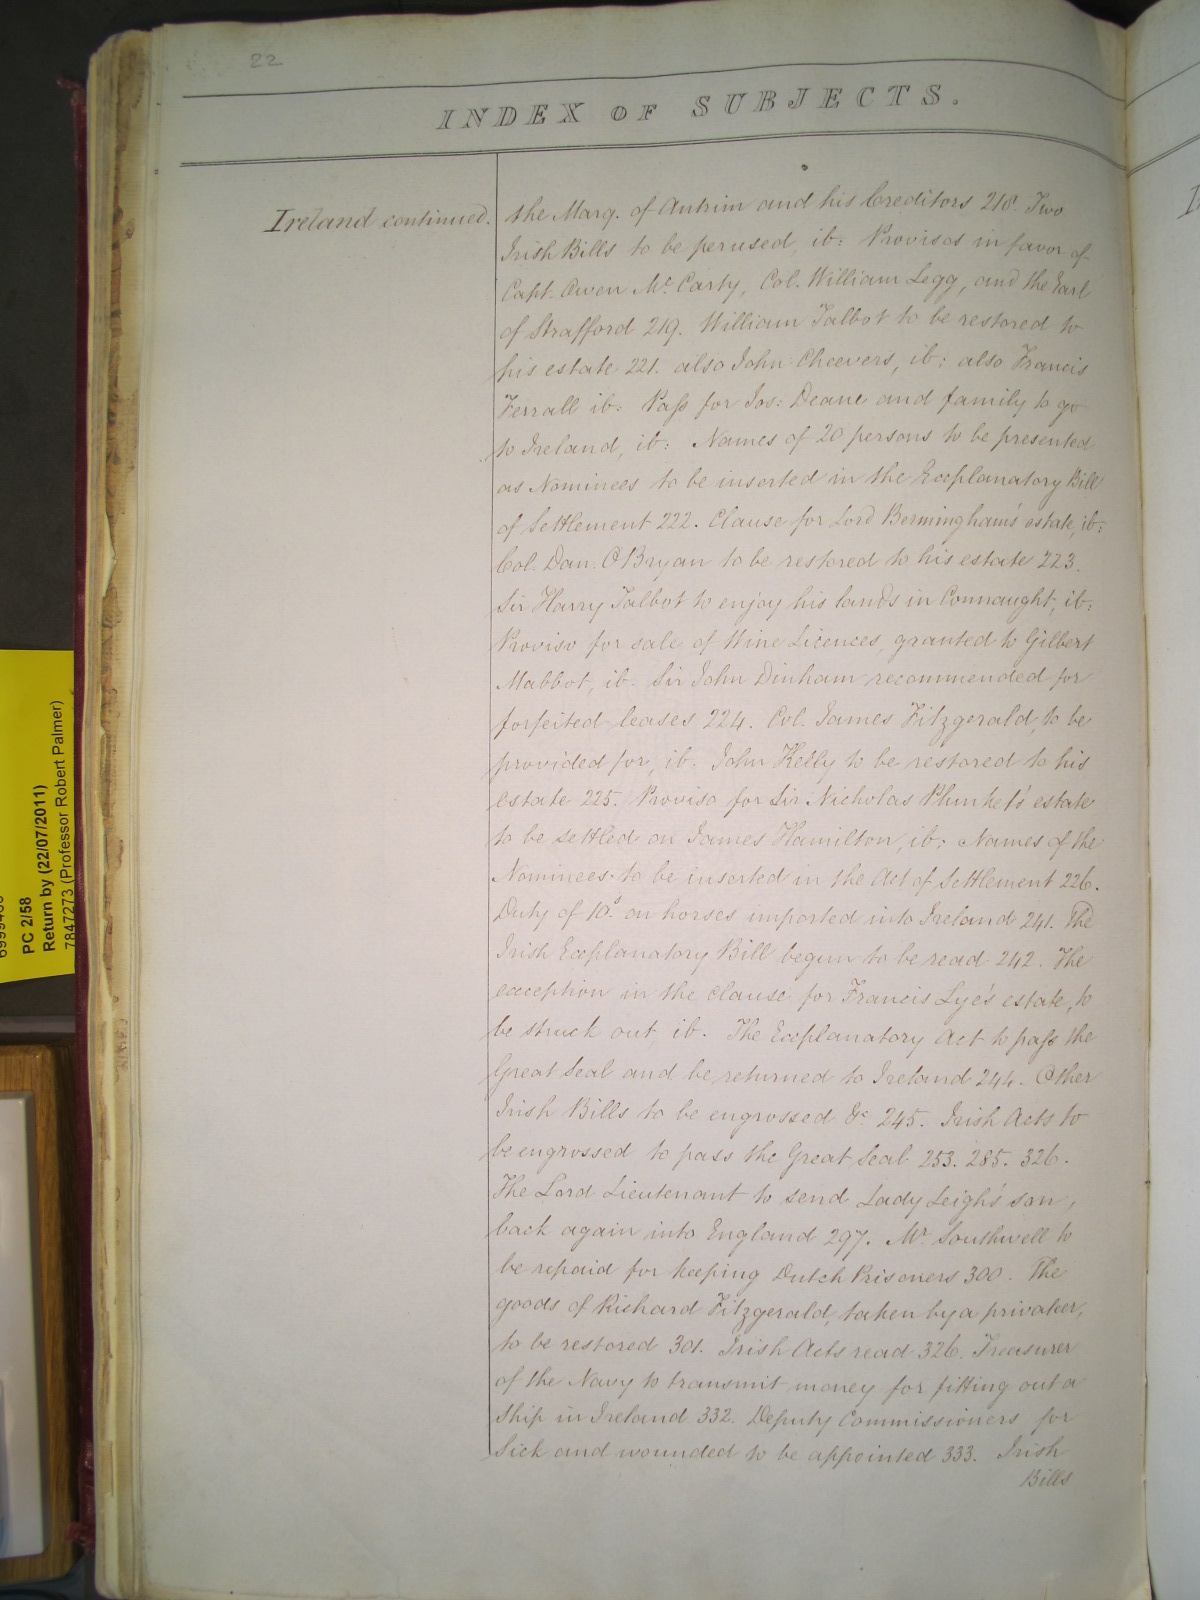 22
INDEX OF SUBJECTS.
Ireland continued.
the Marq. of Antrim and his Creditors 218. Two
Irish Bills to be perused, ib: Provisos in favor of
Capt. Owen Mc. Carty, Col. William Legg, and the Earl
of Strafford 219. William Talbot to be restored to
his estate 221. also John Cheevers, ib: also Francis
Ferrall ib: Paſs for Jos: Deane and family to go
to Ireland, ib: Names of 20 persons to be presented
as Nominees to be inserted in the Explanatory Bill
of Settlement 222. Clause for Lord Bermingham's estate, ib:
Col. Dan. O'Bryan to be restored to his estate 223.
Sir Harry Talbot to enjoy his lands in Connaught, ib:
Proviso for sale of Wine Licences, granted to Gilbert
Mabbot, ib. Sir John Dinham recommended for
forfeited leases 224. Col. James Fitzgerald, to be
provided for, ib. John Kelly to be restored to his
estate 225. Proviso for Sir Nicholas Plunket's estate
to be settled on James Hamilton, ib: Names of the
Nominees to be inserted in the Act of Settlement 226.
Duty of 10s. on horses imported into Ireland 241. The
Irish Explanatory Bill begun to be read 242. The
exception in the clause for Francis Lye's estate, to
be struck out, ib. The Explanatory Act to paſs the
Great Seal and be returned to Ireland 244. Other
Irish Bills to be engrossed &c. 245. Irish Acts to
be engrossed to pass the Great Seal 253. 285. 326.
The Lord Lieutenant to send Lady Leigh's son,
back again into England 297. Mr. Southwell to
be repaid for keeping Dutch Prisoners 300. The
goods of Richard Fitzgerald, taken by a privateer,
to be restored 301. Irish Acts read 326. Treasurer
of the Navy to transmit money for fitting out a
Ship in Ireland 332. Deputy Commissioners for
Sick and wounded to be appointed 333. Irish
Bills
PC 2/58
Return by (22/07/2011)
7847273 (Professor Robert Palmer)